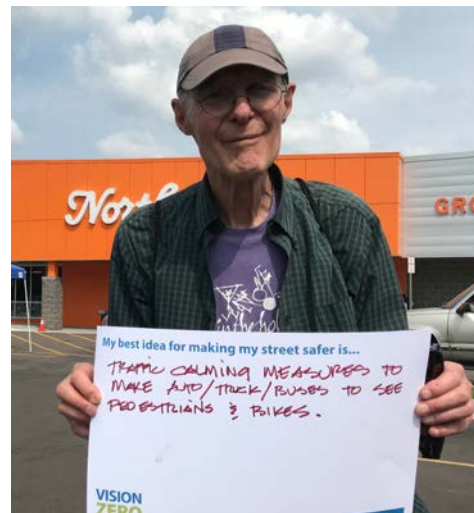 North
GRO
My best idea for making my street safer is...
TRAFFIC CALMING MEASURES TO
MAKE AUTO/TRUCK/BUSES TO SEE
PEDESTRIANS & BIKES.
VISION
ZERO